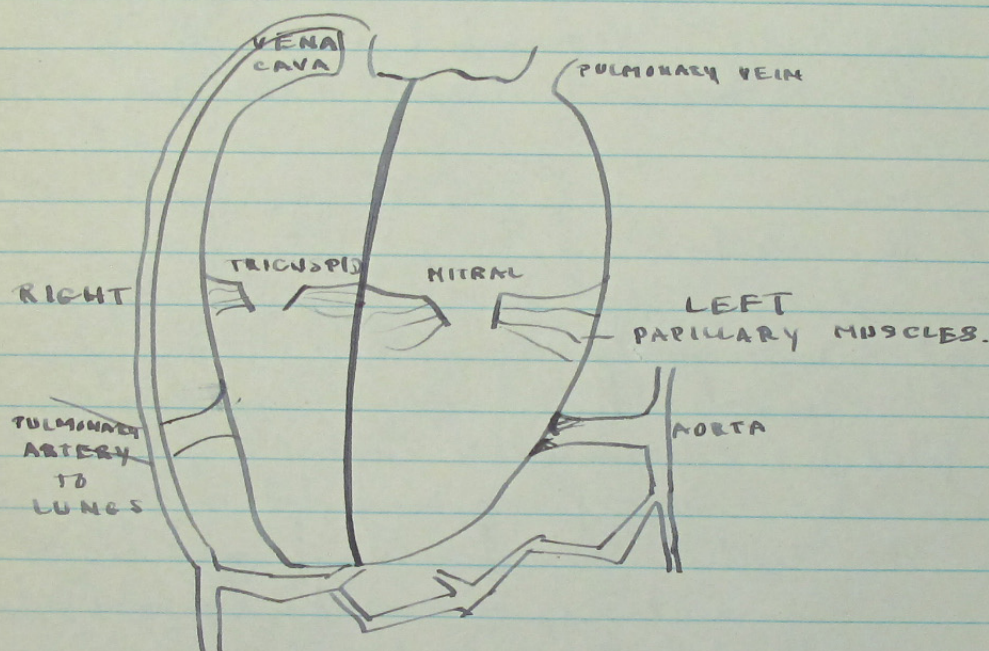 VENA
CAVA
PULMONARY VEIN
TRICUSPID
MITRAL
RIGHT
LEFT
PAPILLARY MUSCLES.
PULMONARY
ARTERY
TO
LUNGS
AORTA